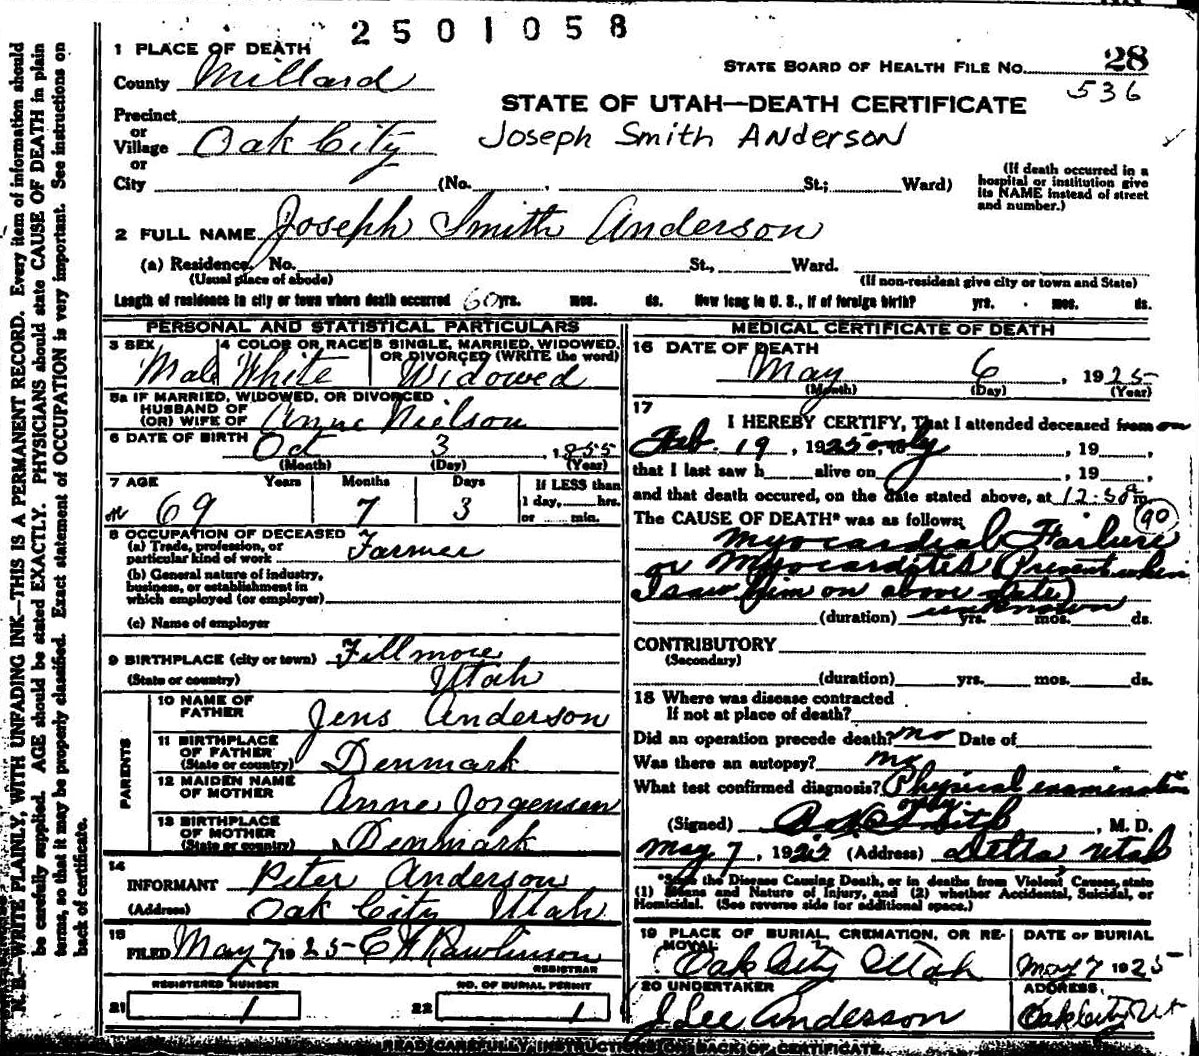 2501058
1 PLACE OF DEATH
28
County Millard
STATE BOARD OF HEALTH FILE NO.
536
STATE OF UTAH—DEATH CERTIFICATE
Precinct
or
Village Oak City
or
Joseph Smith Anderson
City (No. , St.; Ward)
(If death occurred in a hospital or institution give its NAME instead of street and number.)
2 FULL NAME Joseph Smith Anderson
(a) Residence. No. St., Ward.
(Usual place of abode) (If non-resident give city or town and State)
Length of residence in city or town where death occurred 60 yrs. mos. ds. How long in U. S., if of foreign birth? yrs. mos. ds.
PERSONAL AND STATISTICAL PARTICULARS
3 SEX 4 COLOR OR RACE 5 SINGLE, MARRIED, WIDOWED, OR DIVORCED (WRITE the word)
Male White Widowed
5a IF MARRIED, WIDOWED, OR DIVORCED
HUSBAND OF
(OR) WIFE OF Anne Nielson
6 DATE OF BIRTH Oct 3, 1855
(Month) (Day) (Year)
7 AGE Years Months Days If LESS than
1 day, hrs.
69 7 3 or min.
8 OCCUPATION OF DECEASED
(a) Trade, profession, or
particular kind of work Farmer
(b) General nature of industry,
business, or establishment in
which employed (or employer)
(c) Name of employer
9 BIRTHPLACE (city or town) Fillmore
(State or country) Utah
PARENTS
10 NAME OF
FATHER Jens Anderson
11 BIRTHPLACE
OF FATHER
(State or country) Denmark
12 MAIDEN NAME
OF MOTHER Anne Jorgensen
13 BIRTHPLACE
OF MOTHER
(State or country) Denmark
14
INFORMANT Peter Anderson
(Address) Oak City Utah
15
FILED May 7 1925 C W Rawlinson
REGISTRAR
REGISTERED NUMBER NO. OF BURIAL PERMIT
21 1 22 1
MEDICAL CERTIFICATE OF DEATH
16 DATE OF DEATH
May 6, 1925
(Month) (Day) (Year)
17
I HEREBY CERTIFY, That I attended deceased from on
Feb. 19, 1925 only, to , 19 ,
that I last saw h alive on , 19 ,
and that death occured, on the date stated above, at 12-30 a m.
The CAUSE OF DEATH* was as follows:
90
Myocardial Failure
or Myocarditis (Present when
I saw him on above date)
(duration) unknown yrs. mos. ds.
CONTRIBUTORY
(Secondary)
(duration) yrs. mos. ds.
18 Where was disease contracted
If not at place of death?
Did an operation precede death? no Date of
Was there an autopsy? no
What test confirmed diagnosis? Physical examination
only.
(Signed) , M. D.
May 7, 19 (Address) Delta, Utah
*State the Disease Causing Death, or in deaths from Violent Causes, state
(1) Means and Nature of Injury, and (2) whether Accidental, Suicidal, or
Homicidal. (See reverse side for additional space.)
19 PLACE OF BURIAL, CREMATION, OR RE-
MOVAL DATE OF BURIAL
Oak City Utah May 7 1925
20 UNDERTAKER ADDRESS
J. Lee Anderson Oak City Ut
READ CAREFULLY INSTRUCTIONS ON BACK OF CERTIFICATE.
N. B.—WRITE PLAINLY, WITH UNFADING INK—THIS IS A PERMANENT RECORD. Every item of information should
be carefully supplied. AGE should be stated EXACTLY. PHYSICIANS should state CAUSE OF DEATH in plain
terms, so that it may be properly classified. Exact statement of OCCUPATION is very important. See instructions on
back of certificate.